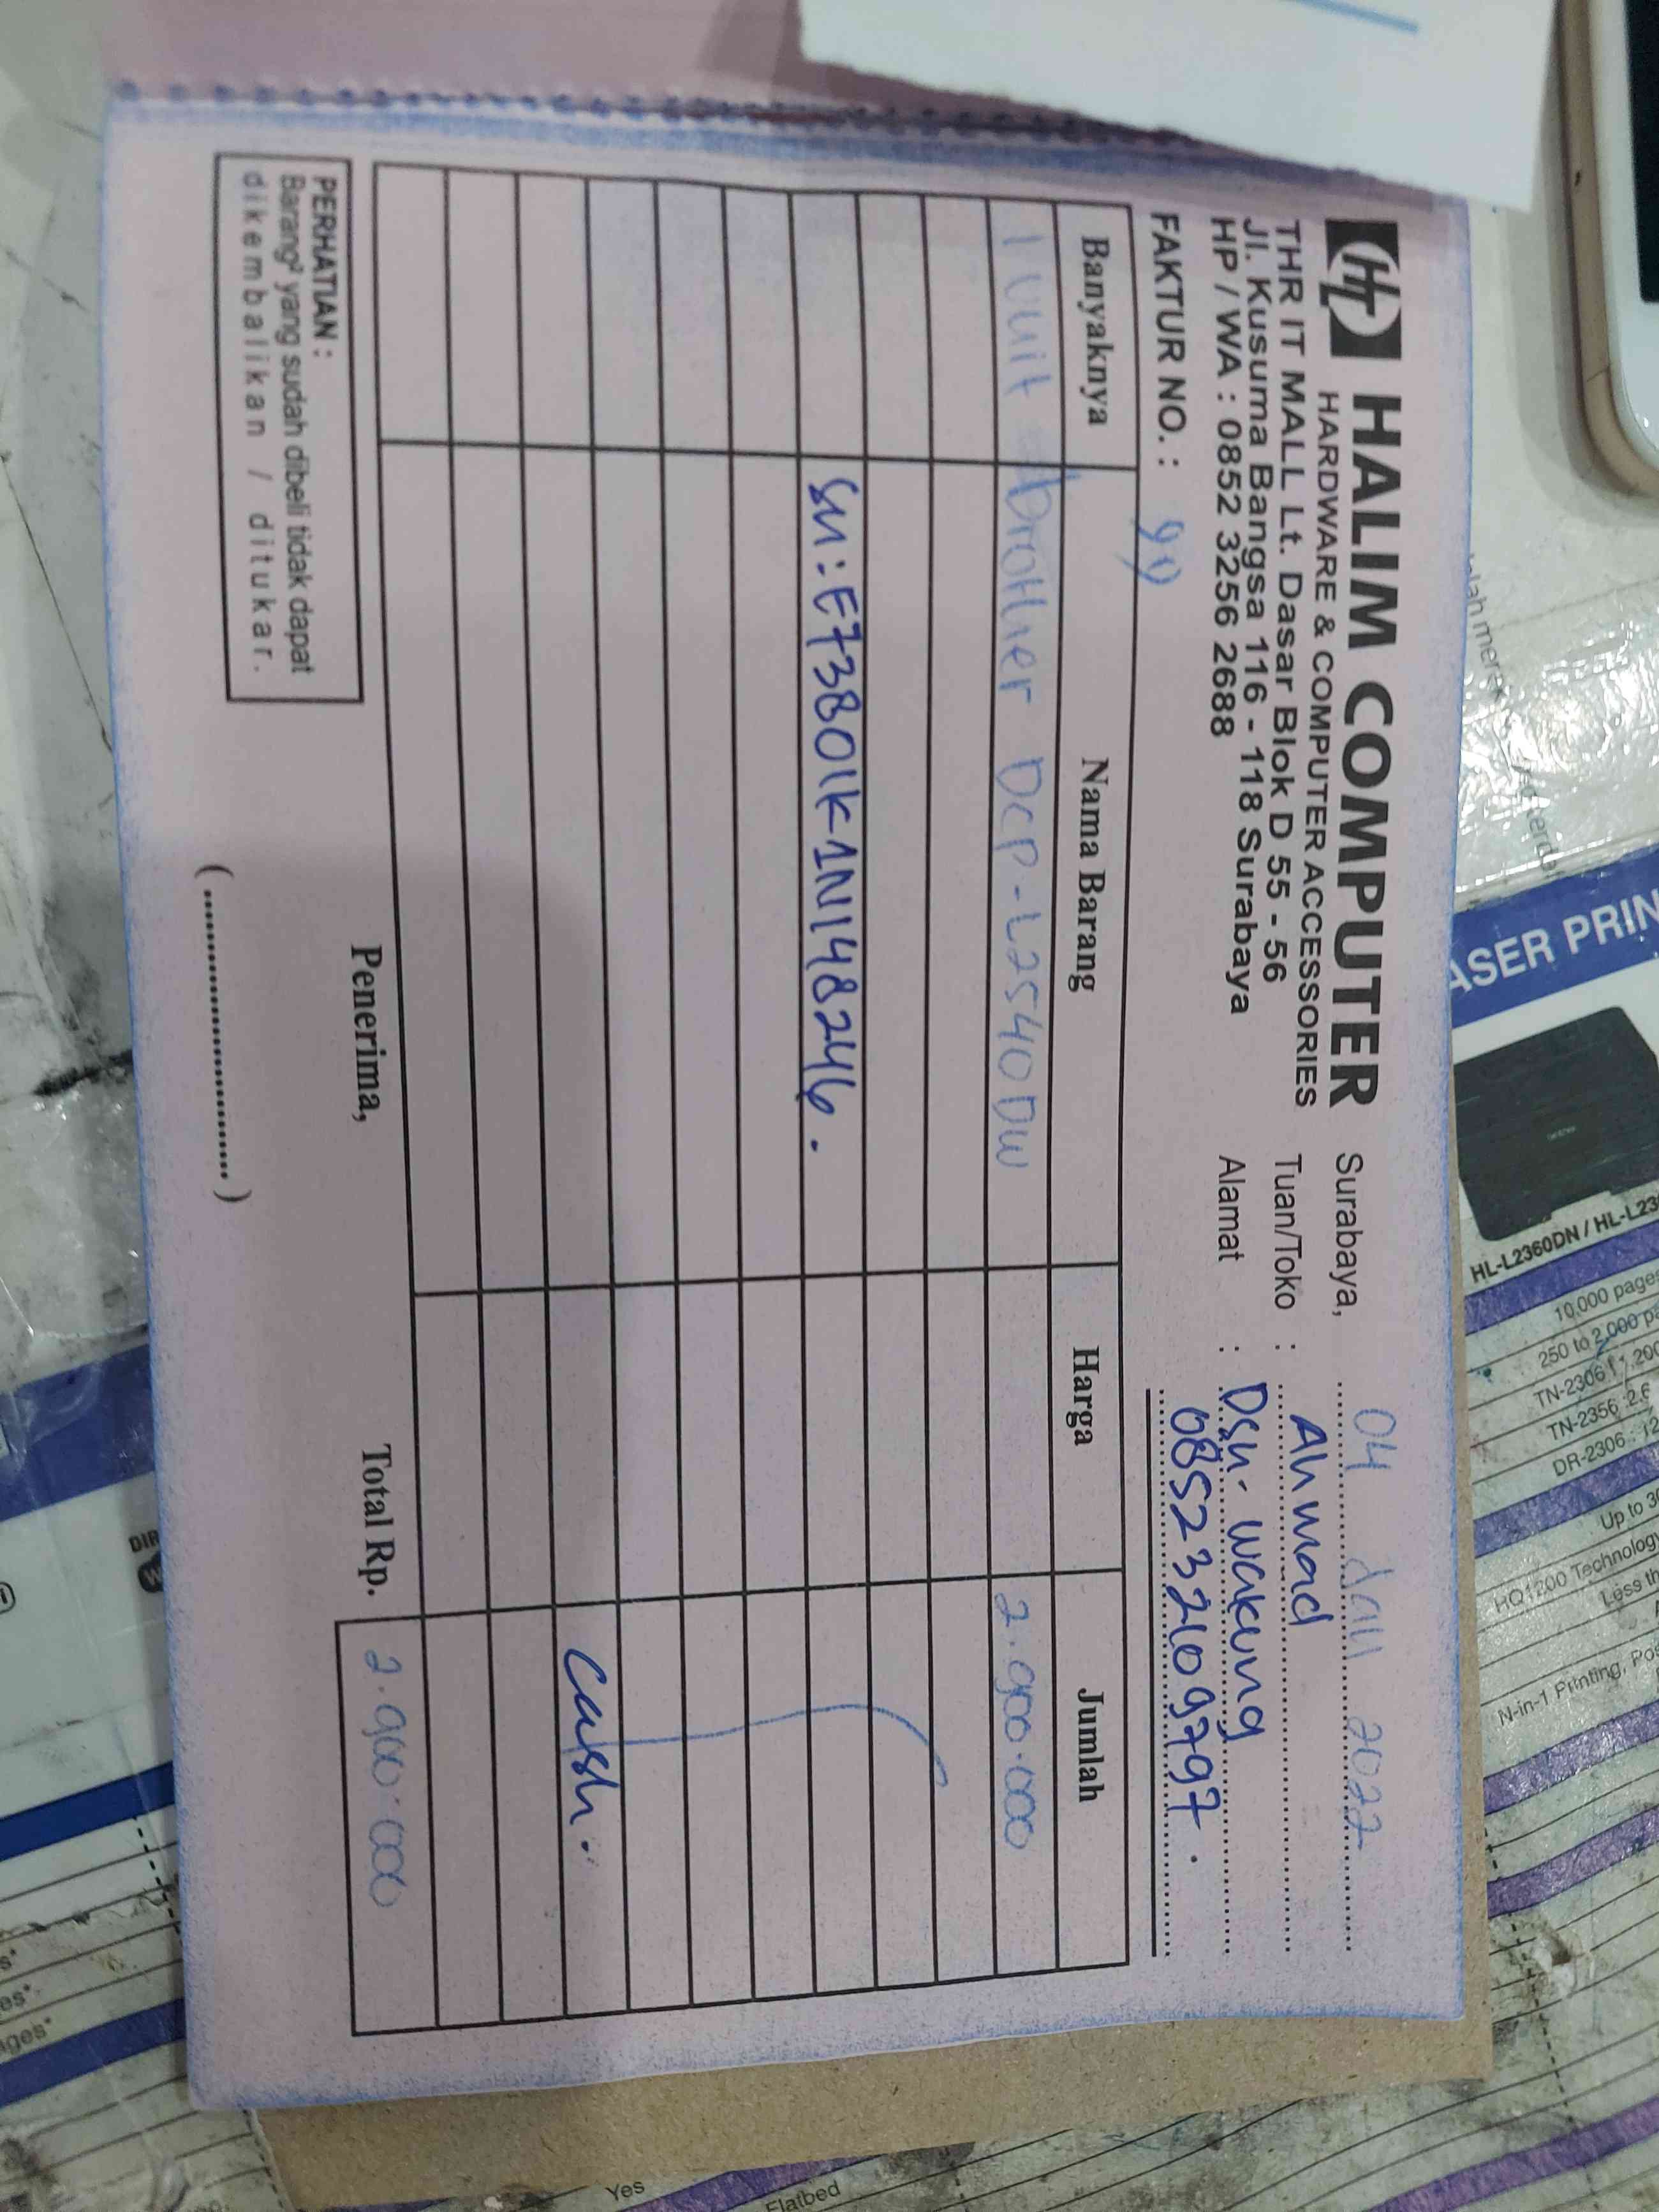 HT HALIM COMPUTER
HARDWARE & COMPUTER ACCESSORIES
THR IT MALL Lt. Dasar Blok D 55 - 56
Jl. Kusuma Bangsa 116 - 118 Surabaya
HP / WA : 0852 3256 2688
Surabaya, 04 Jan 2022
Tuan/Toko : Ahmad
Alamat : Dsn. Wakung
085232109797.
FAKTUR NO. :
Banyaknya Nama Barang Harga Jumlah
1 unit brother DCP-L2540DW 2.900.000
SN: E73801K1N148246.
Cash.
PERHATIAN :
Barang² yang sudah dibeli tidak dapat
dikembalikan / ditukar.
Penerima,
(..............................)
Total Rp. 2.900.000
ASER PRIN
HL-L2360DN / HL-L23
10,000 pages
250 to 2,000 pa
Up to 30
HQ1200 Technology
Less th
N-in-1 Printing, Pos
Yes
Flatbed